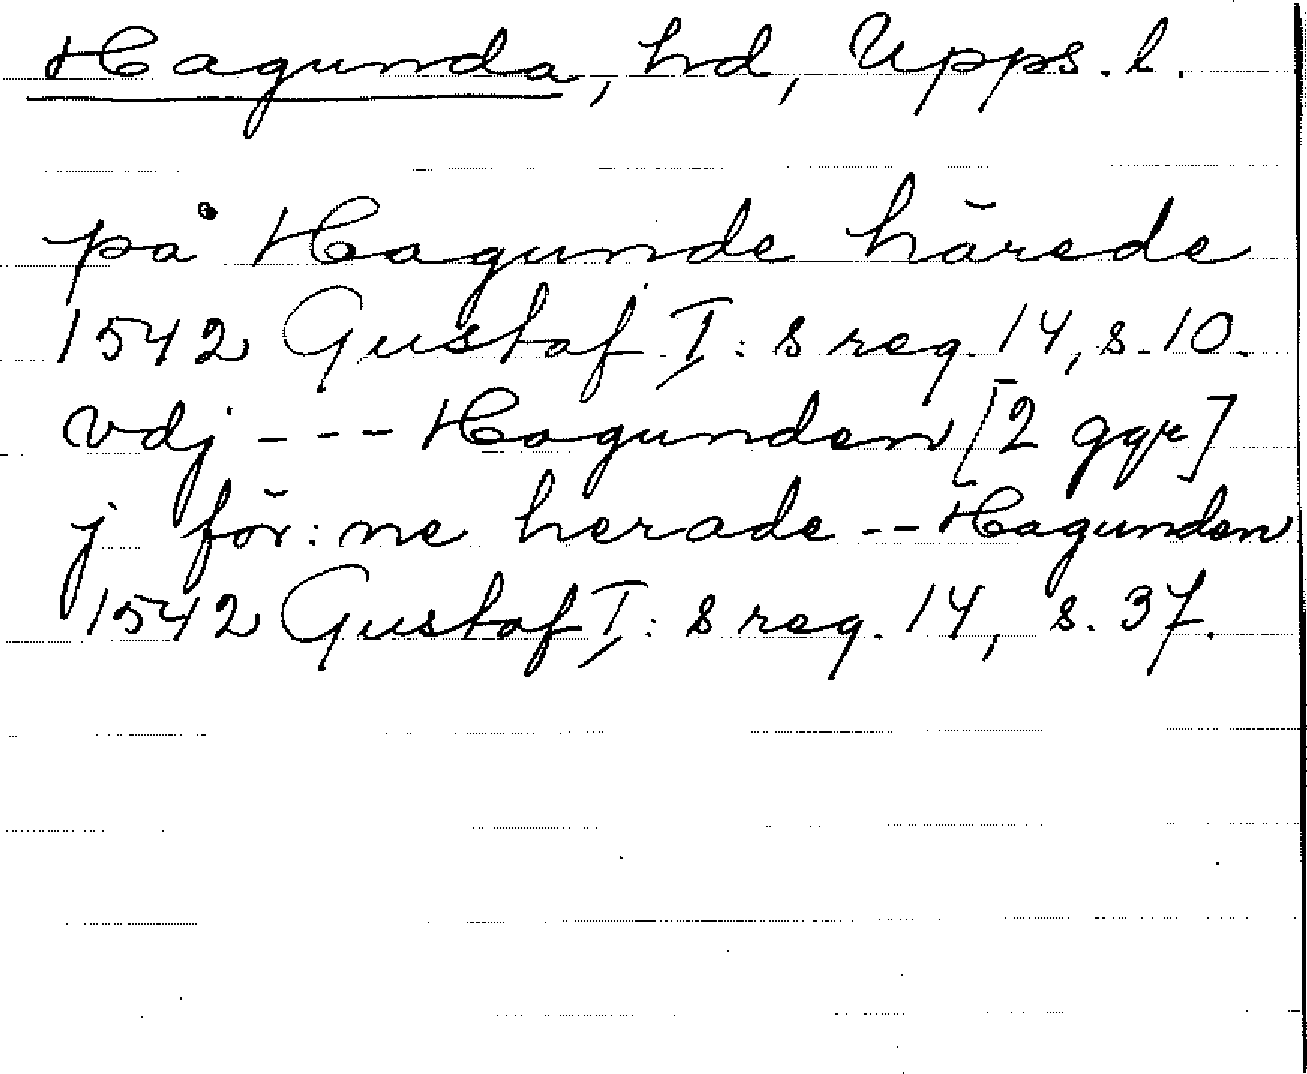 Hagunda, hd, Upps. l.
på Hagunde härede
1542 Gustaf I:s reg. 14, s. 10.
vdj --- Hagunden [2 ggr]
j för:ne herade -- Hagunden
1542 Gustaf I:s reg. 14, s. 37.